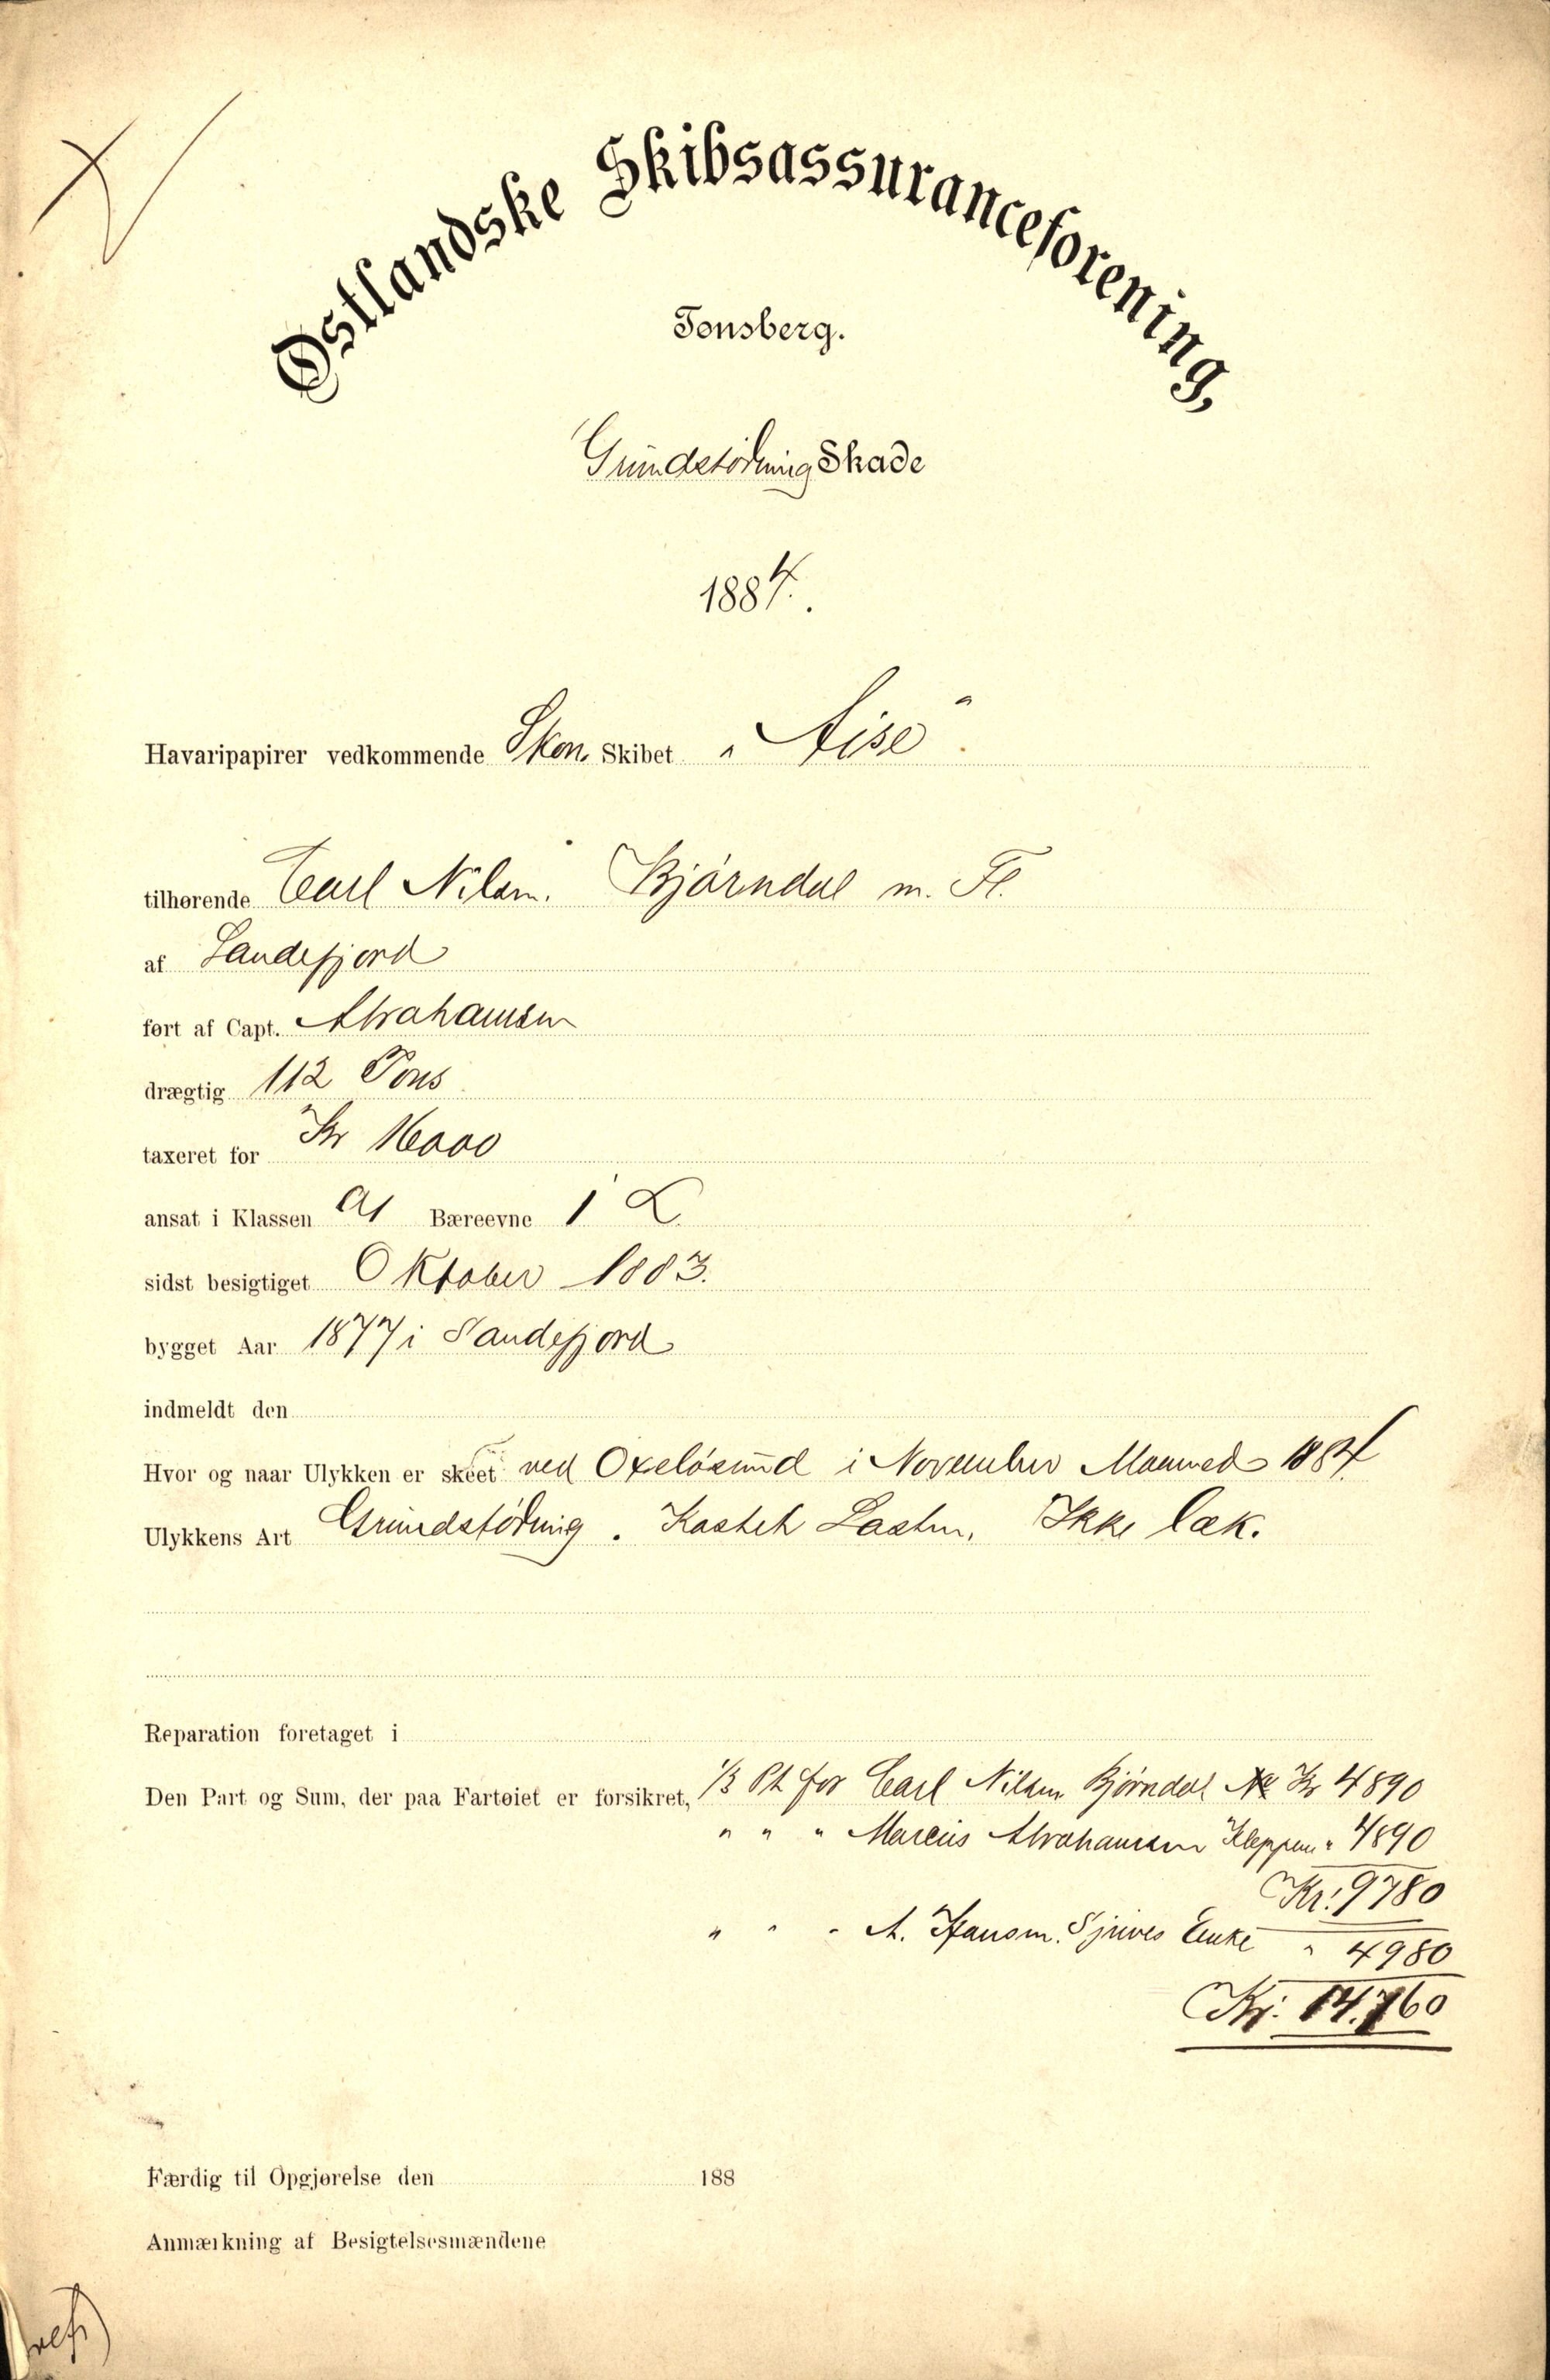 Østlandske Skibsassuranceforening,
Tønsberg.
Grundstødning Skade
1884.
Havaripapirer vedkommende Skon. Skibet „Aise“.
tilhørende Carl Nilsen. Bjørndal m. Fl.
af Sandefjord
ført af Capt. Abrahamsen
drægtig 112 Tons
taxeret for Kr 16000
ansat i Klassen A1 Bæreevne 1
sidst besigtiget Oktober 1883.
bygget Aar 1877 i Sandefjord
indmeldt den
Hvor og naar Ulykken er skeet ved Oxeløsund i November Maaned 1884
Ulykkens Art Grundstødning. Kastet Lasten. Ikke læk.
Reparation foretaget i
Den Part og Sum, der paa Fartøiet er forsikret, 1/3 Pt for Carl Nilsen Bjørndal Kr 4890
" " " Marcus Abrahamsen Kleppen " 4890
Kr. 9780
" " " A. Hansen Enke " 4980
Kr. 14.760
Færdig til Opgjørelse den 188
Anmærkning af Besigtelsesmændene